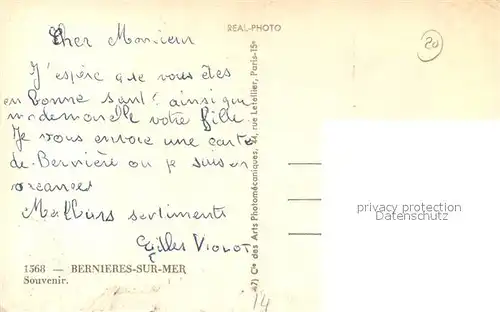 REAL-PHOTO
20
Cher Monsieur
J'espère que vous êtes
en bonne santé ainsi que
mademoiselle votre fille.
Je vous envoie une carte
de Bernière ou je suis en
vacances
Meilleurs sentiments
Gilles VIOLOT
1368 — BERNIERES-SUR-MER
Souvenir.
Cie des Arts Photomécaniques, 44, rue Letellier, Paris-15e
14
privacy protection
Datenschutz